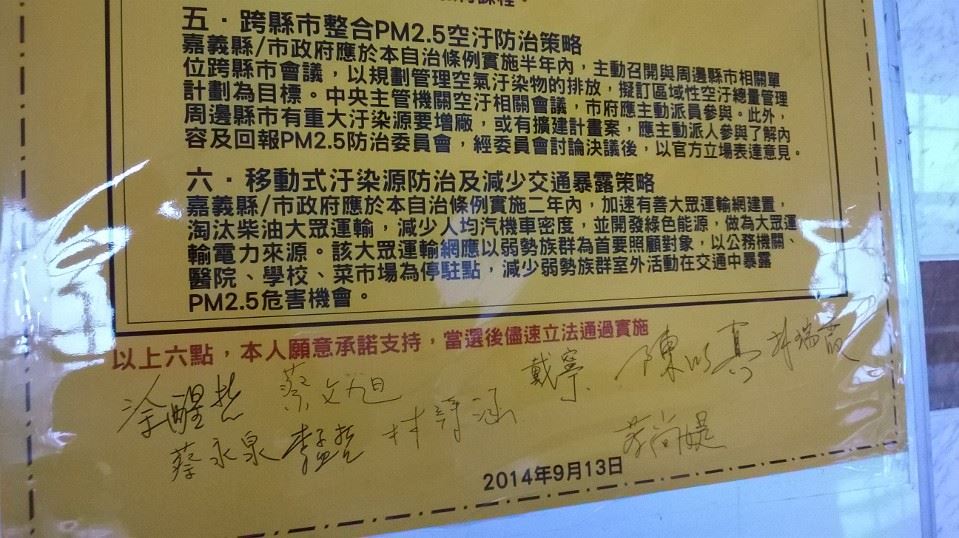 課程。
五．跨縣市整合PM2.5空汙防治策略
嘉義縣/市政府應於本自治條例實施半年內，主動召開與周邊縣市相關單
位跨縣市會議，以規劃管理空氣汙染物的排放，擬訂區域性空汙總量管理
計劃為目標。中央主管機關空汙相關會議，市府應主動派員參與。此外，
周邊縣市有重大汙染源要增廠，或有擴建計畫案，應主動派人參與了解內
容及回報PM2.5防治委員會，經委員會討論決議後，以官方立場表達意見。
六．移動式汙染源防治及減少交通暴露策略
嘉義縣/市政府應於本自治條例實施二年內，加速有善大眾運輸網建置，
淘汰柴油大眾運輸，減少人均汽機車密度，並開發綠色能源，做為大眾運
輸電力來源。該大眾運輸網應以弱勢族群為首要照顧對象，以公務機關、
醫院、學校、菜市場為停駐點，減少弱勢族群室外活動在交通中暴露
PM2.5危害機會。
以上六點，本人願意承諾支持，當選後儘速立法通過實施
涂醒哲 蔡文旭 戴寧 陳以真
蔡永泉 李孟哲 林詩涵
2014年9月13日